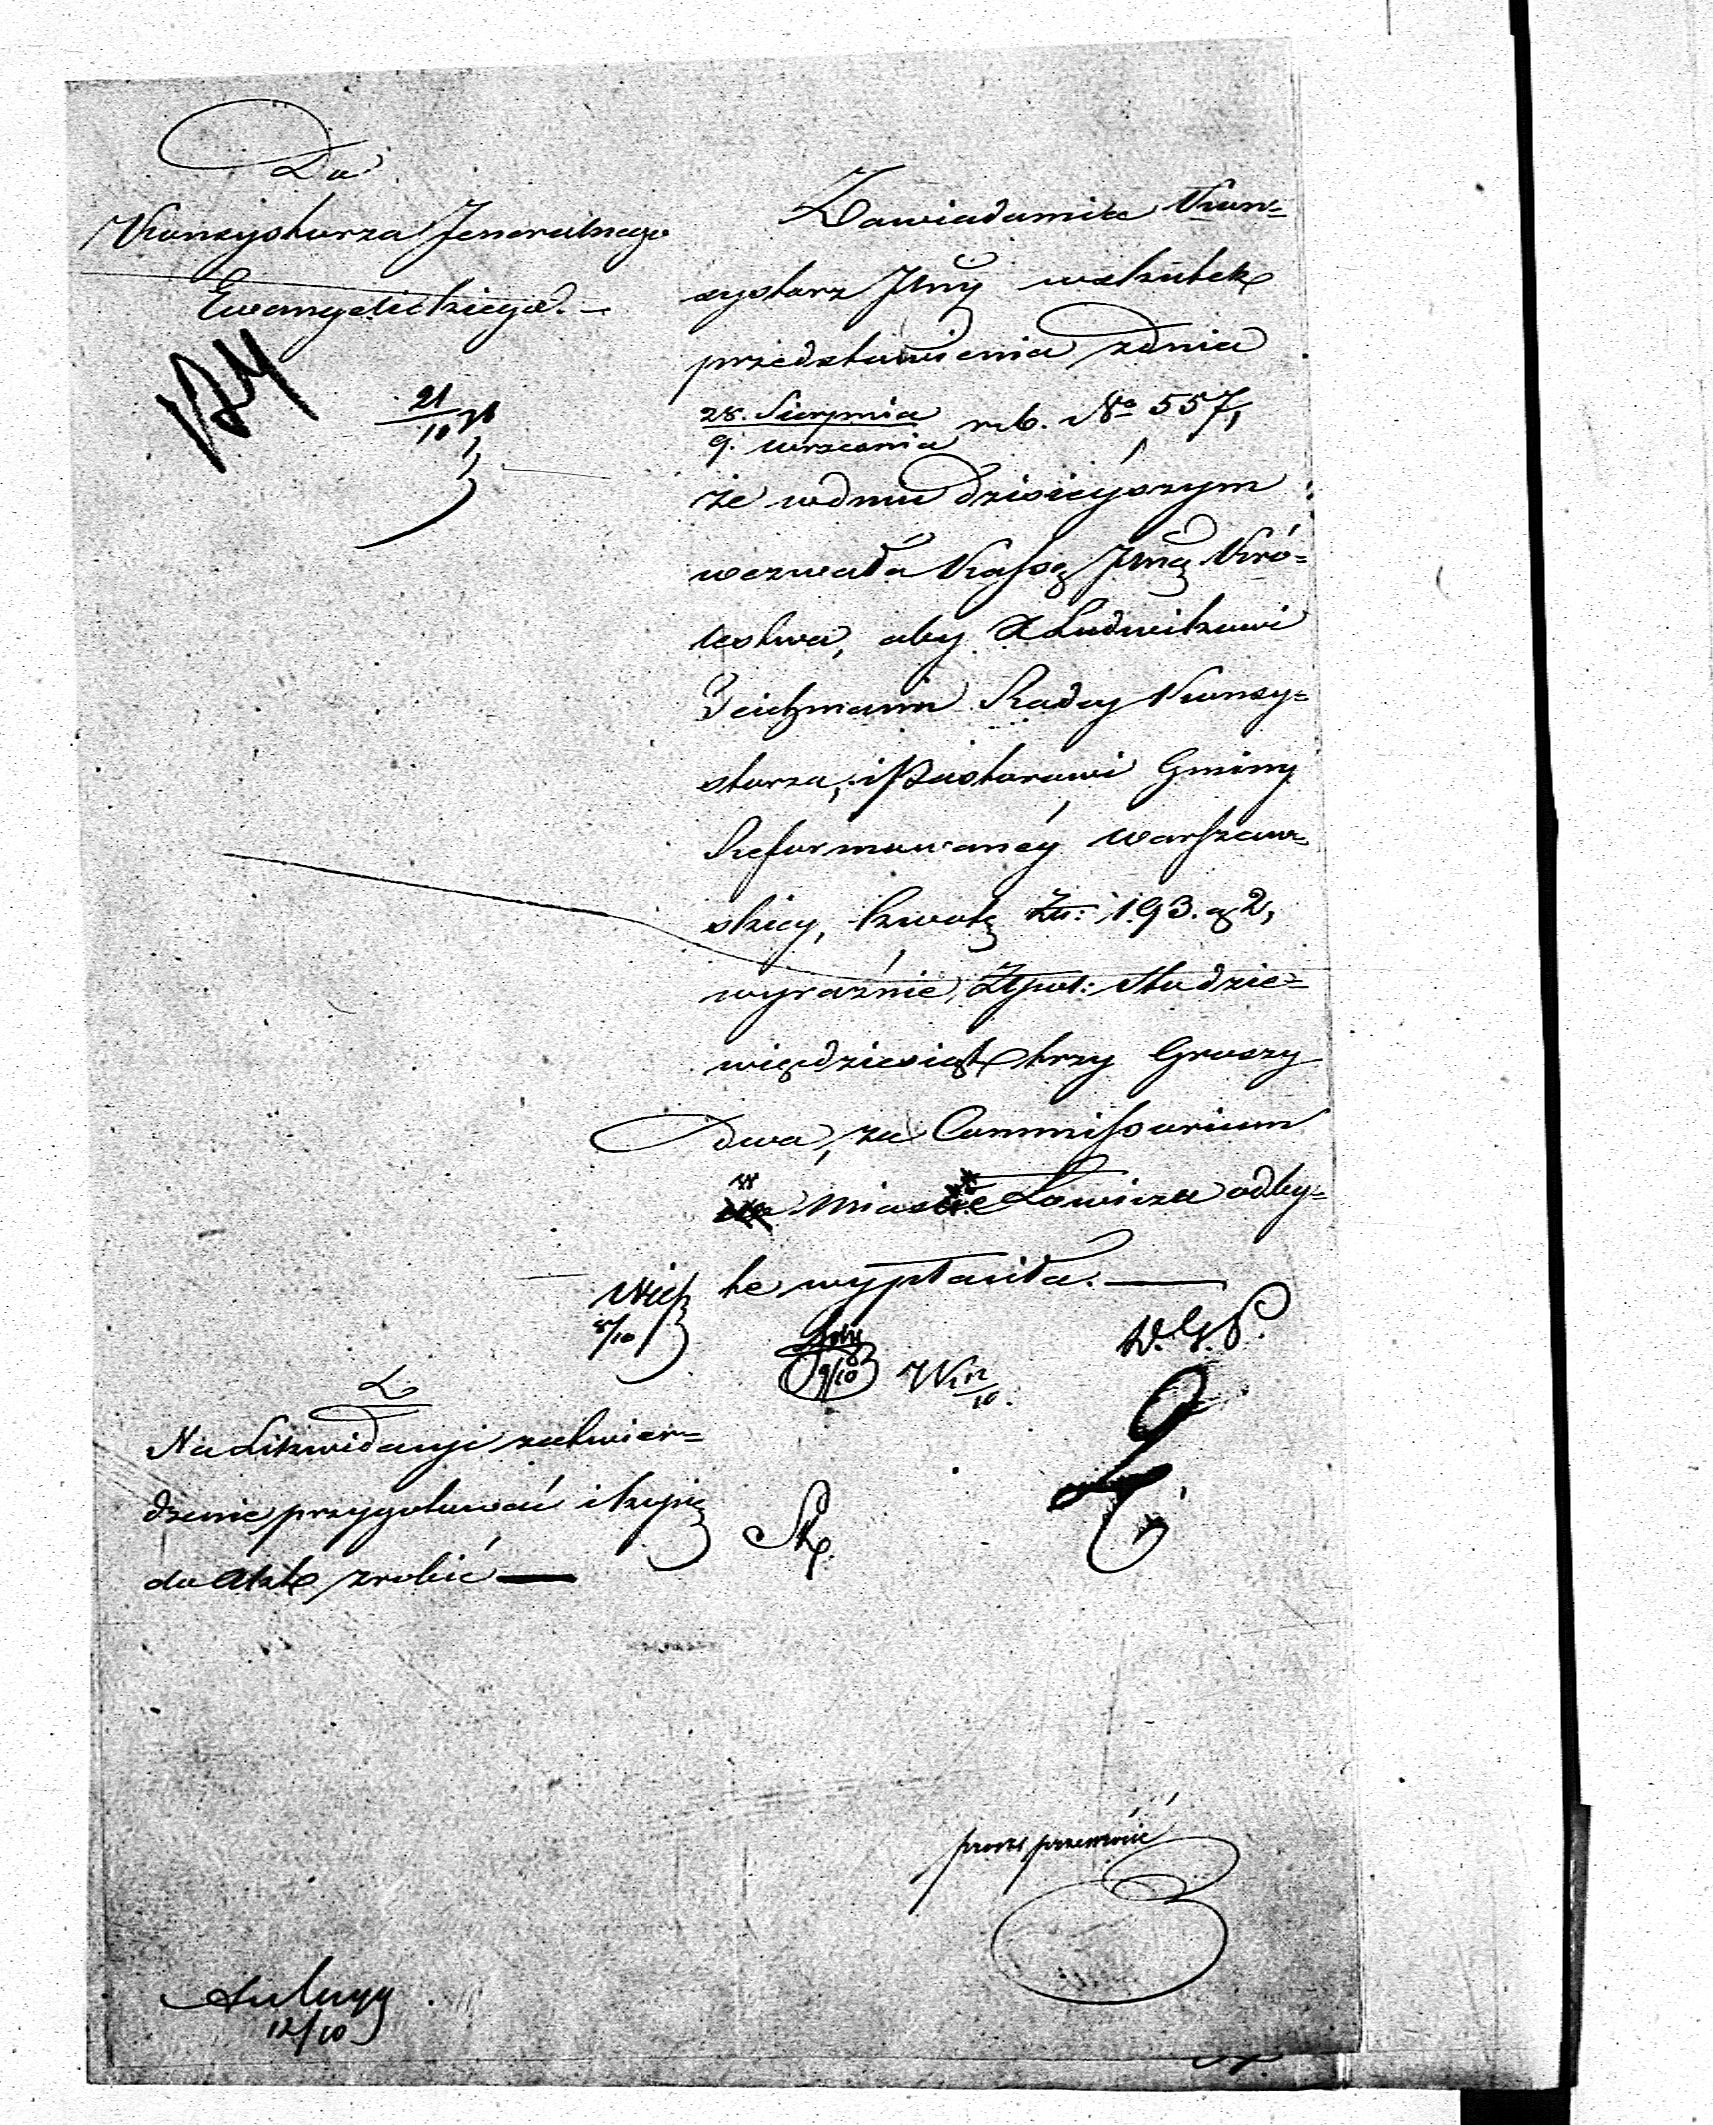 Do
Konsystorza Jeneralnego
Ewangelickiego. –
21/10
Zawiadamia Kon=
systorz Jlny wskutek
przedstawienia zdnia
28. Sierpnia / 9. września rb. No 557,
że wdniu dzisieyszym
wezwała Kassę Jlną Kró=
lestwa, aby X Ludwikowi
Teichmann Radcy Konsy=
storza, i Pastorowi Gminy
Reformowanéy Warszaw=
skiey, kwotę Złt: 193. g 2,
wyraźnie, Złtpol: Sto dzie=
więdziesiąt trzy Groszy
dwa, za Commissorium
w Mieście Łowicza odby=
te wypłaciła. —
8/10
9/10
12/10
D. G. P.
Na Likwidacyi zatwier=
dzenie przygotować i kopię
do Akt zrobić —
12/10